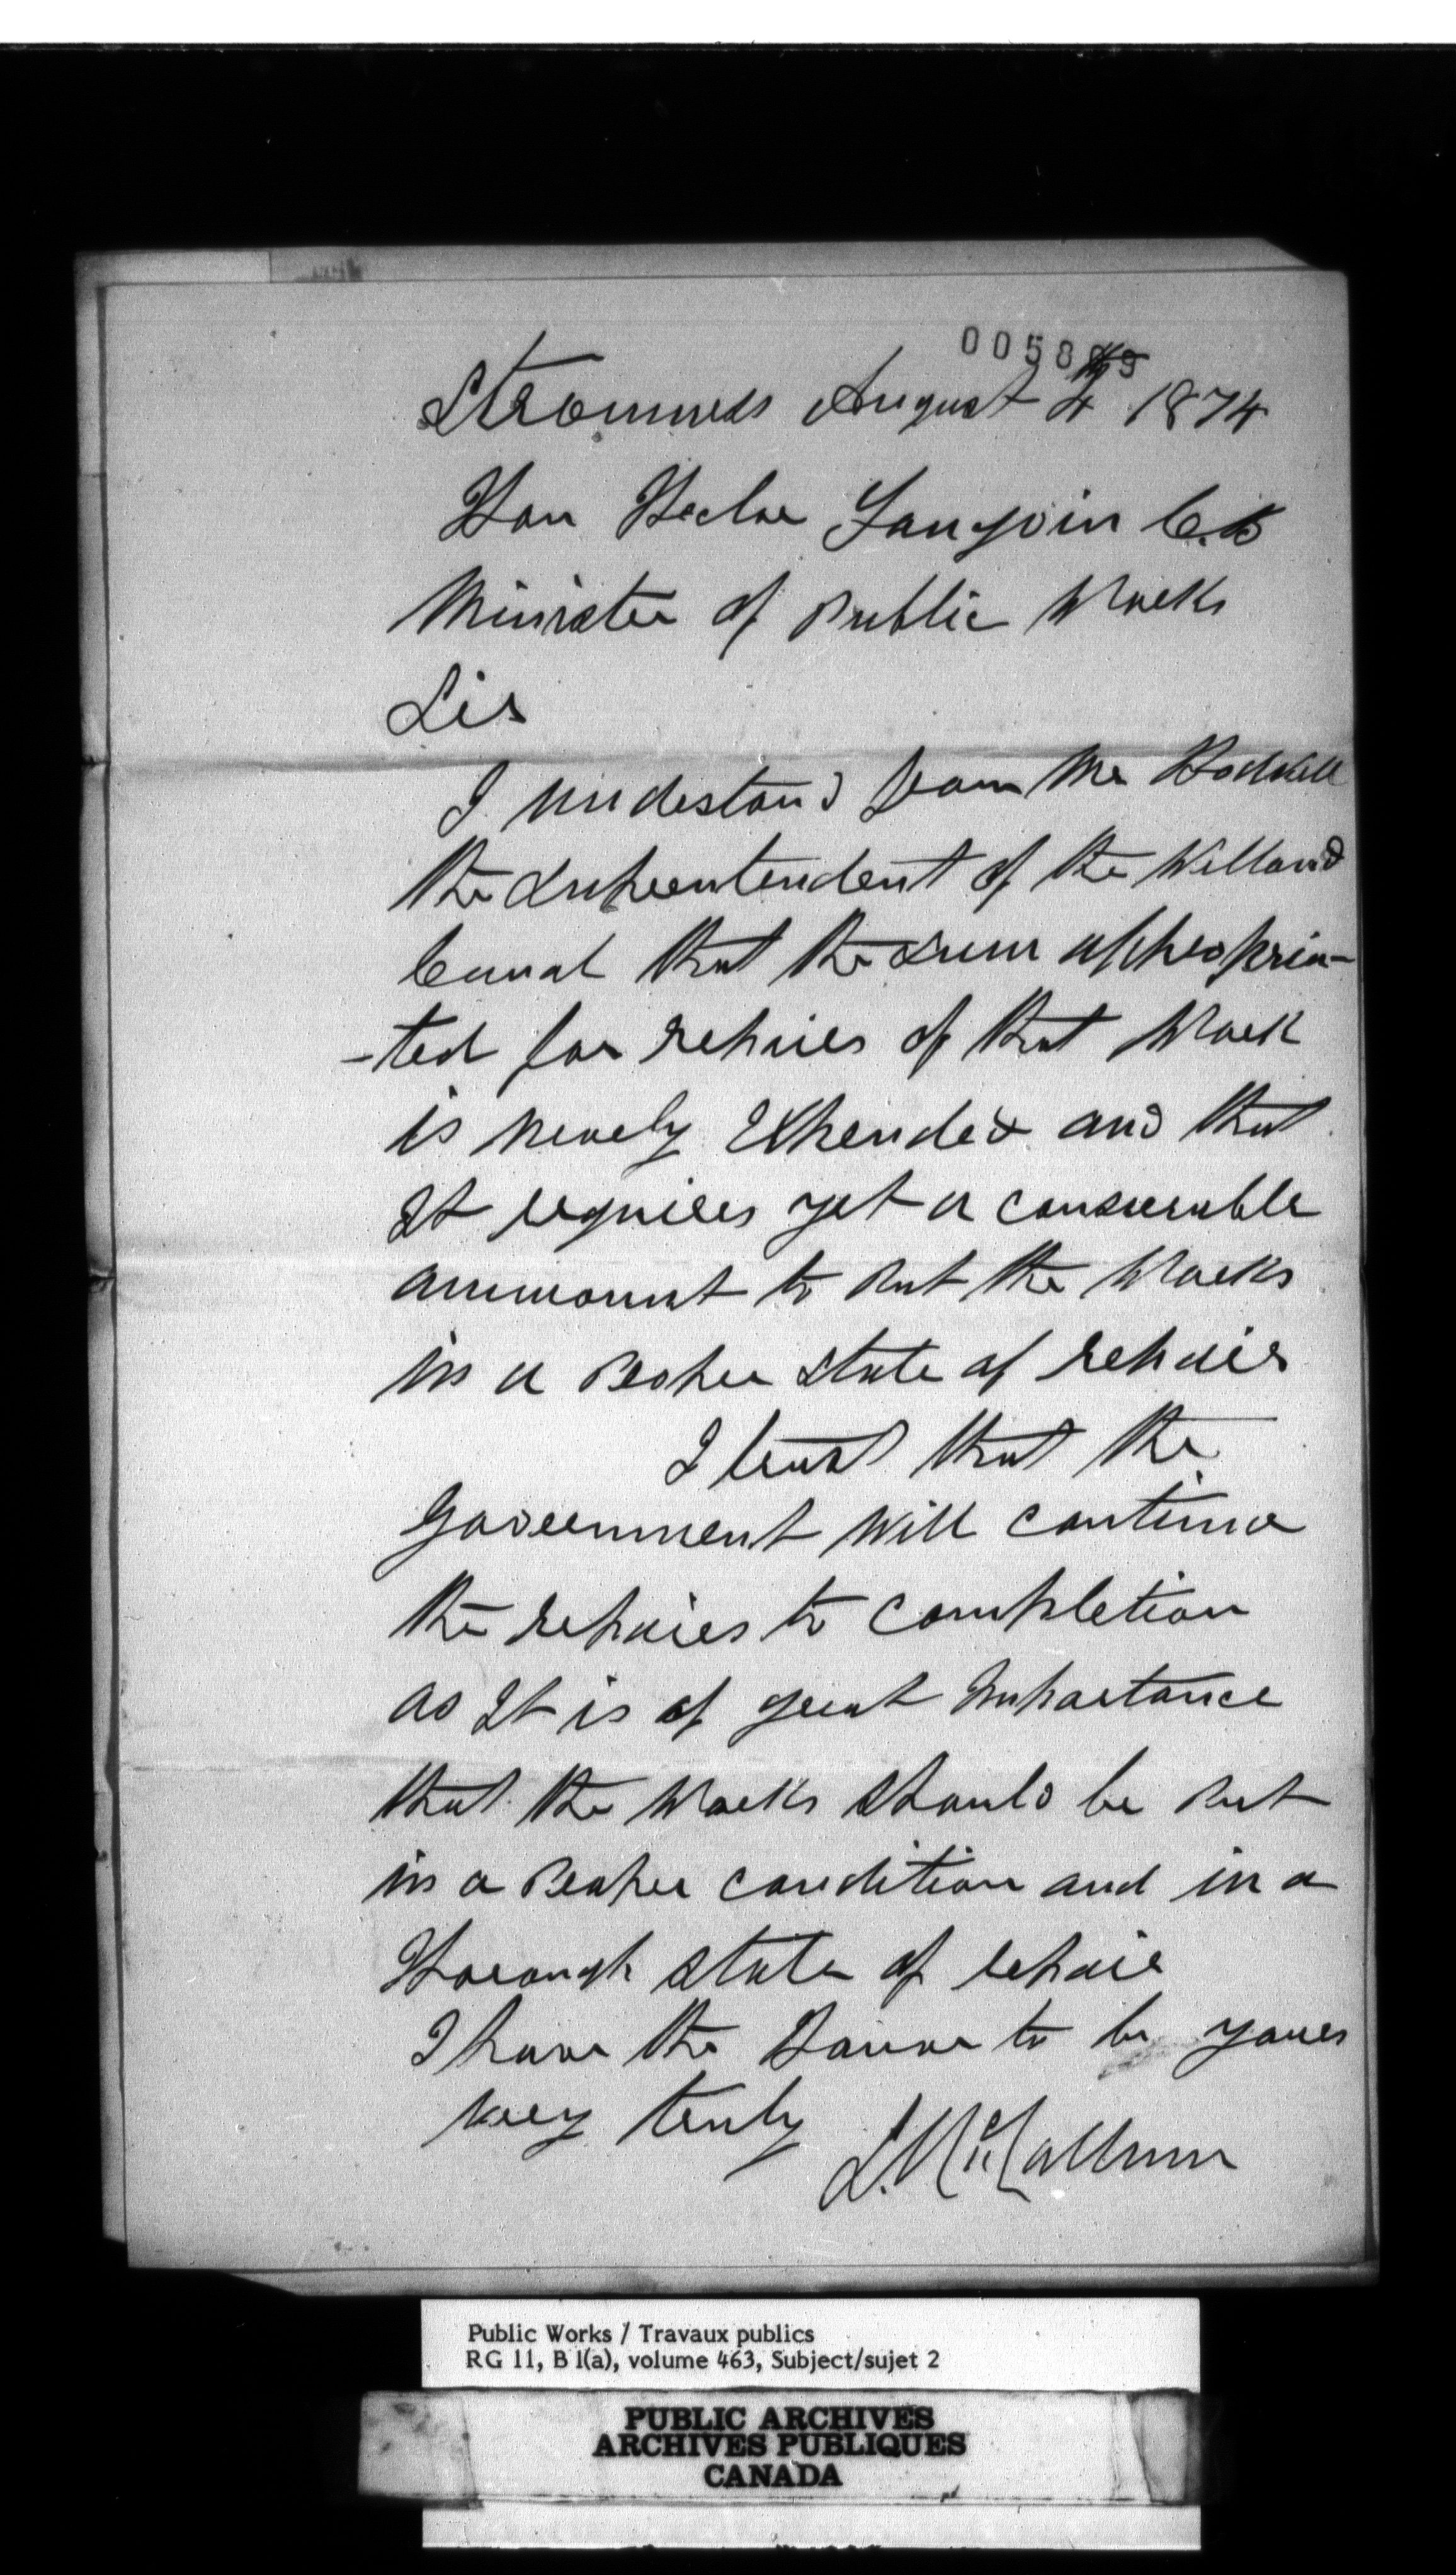 Stromness August 4th 1874
Hon Hector Langvin C.B
Minister of Public Works
Sir
I understand from Mr Bodwell
the Superentendent of the Welland
Cannal that the sum appropria-
-ted for repairs of that Work
is nearly Expended and that
It requires yet a considerable
ammount to Put the Works
in a Proper state of repair
I trust that the
Government Will continue
the repairs to completion
as It is of great Importance
that the Works Should be Put
in a Proper condition and in a
thorough state of repair
I have the Honnor to be yours
very truly
L. McCallum
Public Works / Travaux publics
RG 11, B 1(a), volume 463, Subject/sujet 2
PUBLIC ARCHIVES
ARCHIVES PUBLIQUES
CANADA